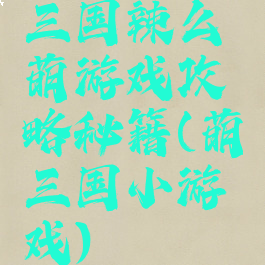 三国辣么
萌游戏攻
略秘籍(萌
三国小游
戏)